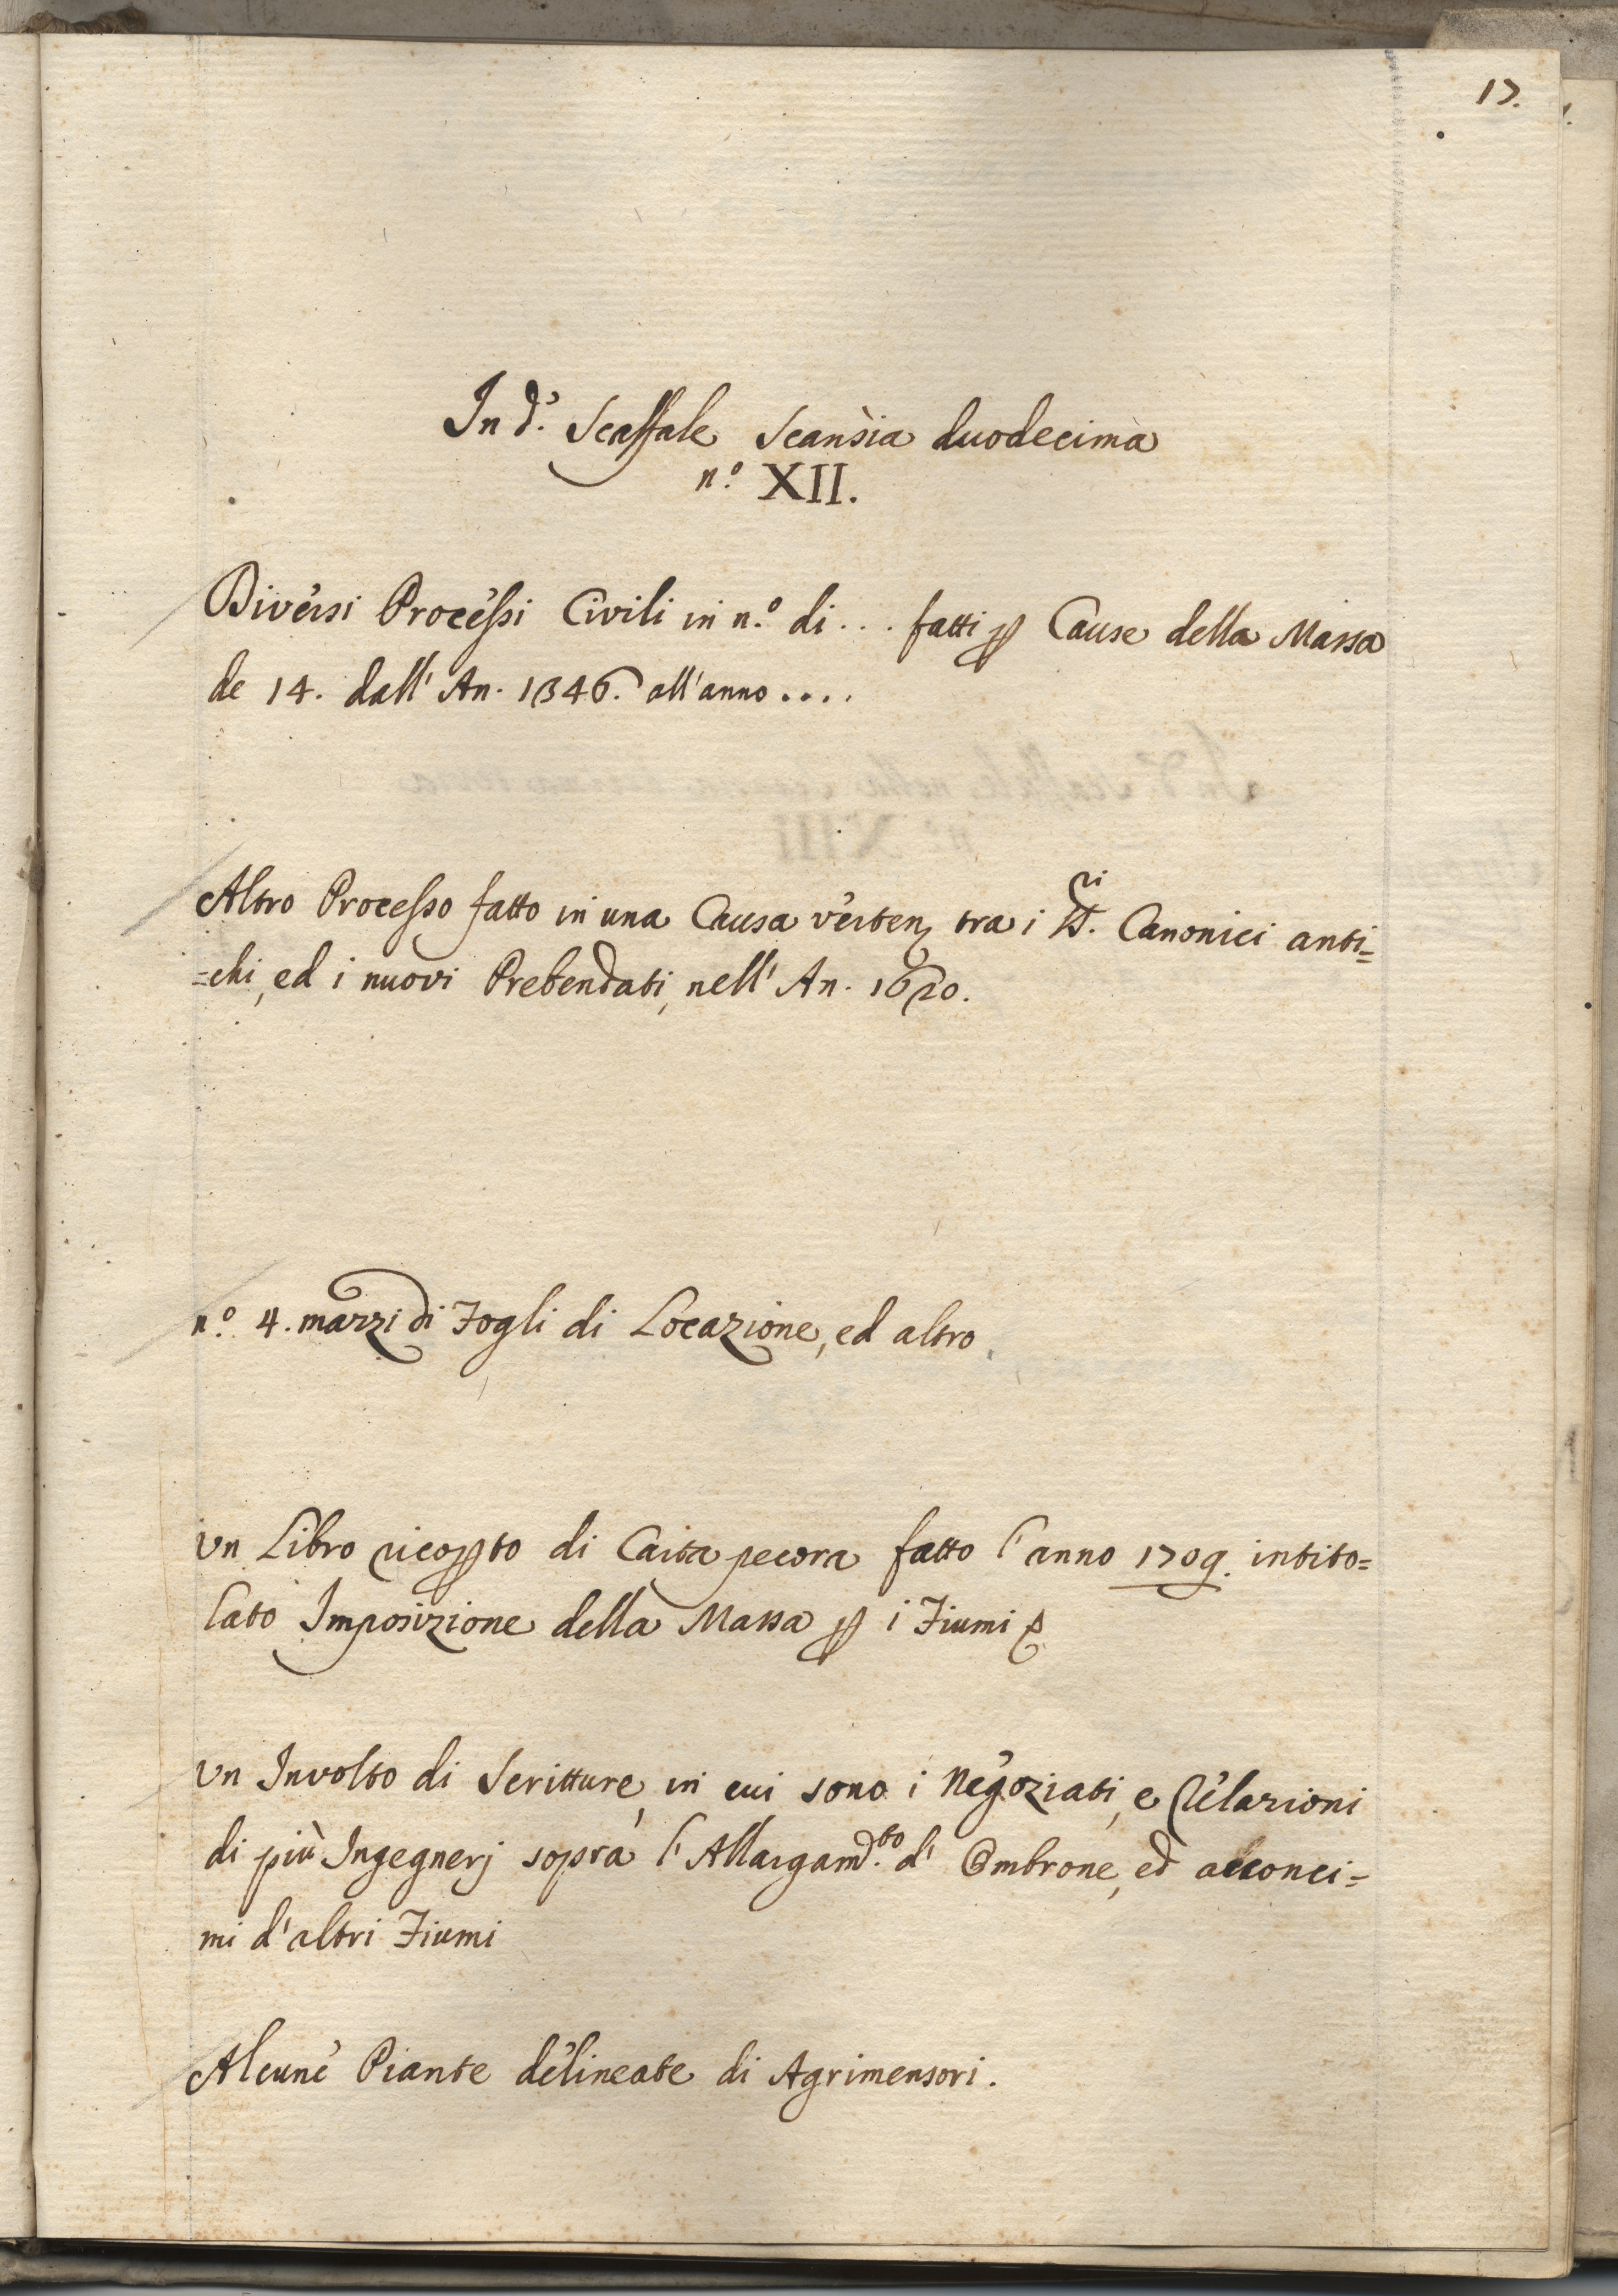 17.
In d.º Scaffale Scansia duodecima
n.º XII.
Diversi Processi Civili in n.º di ... fatti ꝑ Cause della Massa
de 14. dall' An. 1346. all'anno ....
Altro Processo fatto in una Causa verten tra i SS.ri Canonici anti=
=chi, ed i nuovi Prebendati, nell' An. 1620.
n.º 4. mazzi di Fogli di Locazione, ed altro
Un Libro ricoꝑto di Carta pecora fatto l'anno 1709. intito=
lato Imposizione della Massa ꝑ i Fiumi
Un Involto di Scritture, in cui sono i Negoziati, e Relazioni
di più Ingegnerj sopra l'Allargam.to d' Ombrone, ed acconci=
mi d'altri Fiumi
Alcune Piante delineate di Agrimensori.